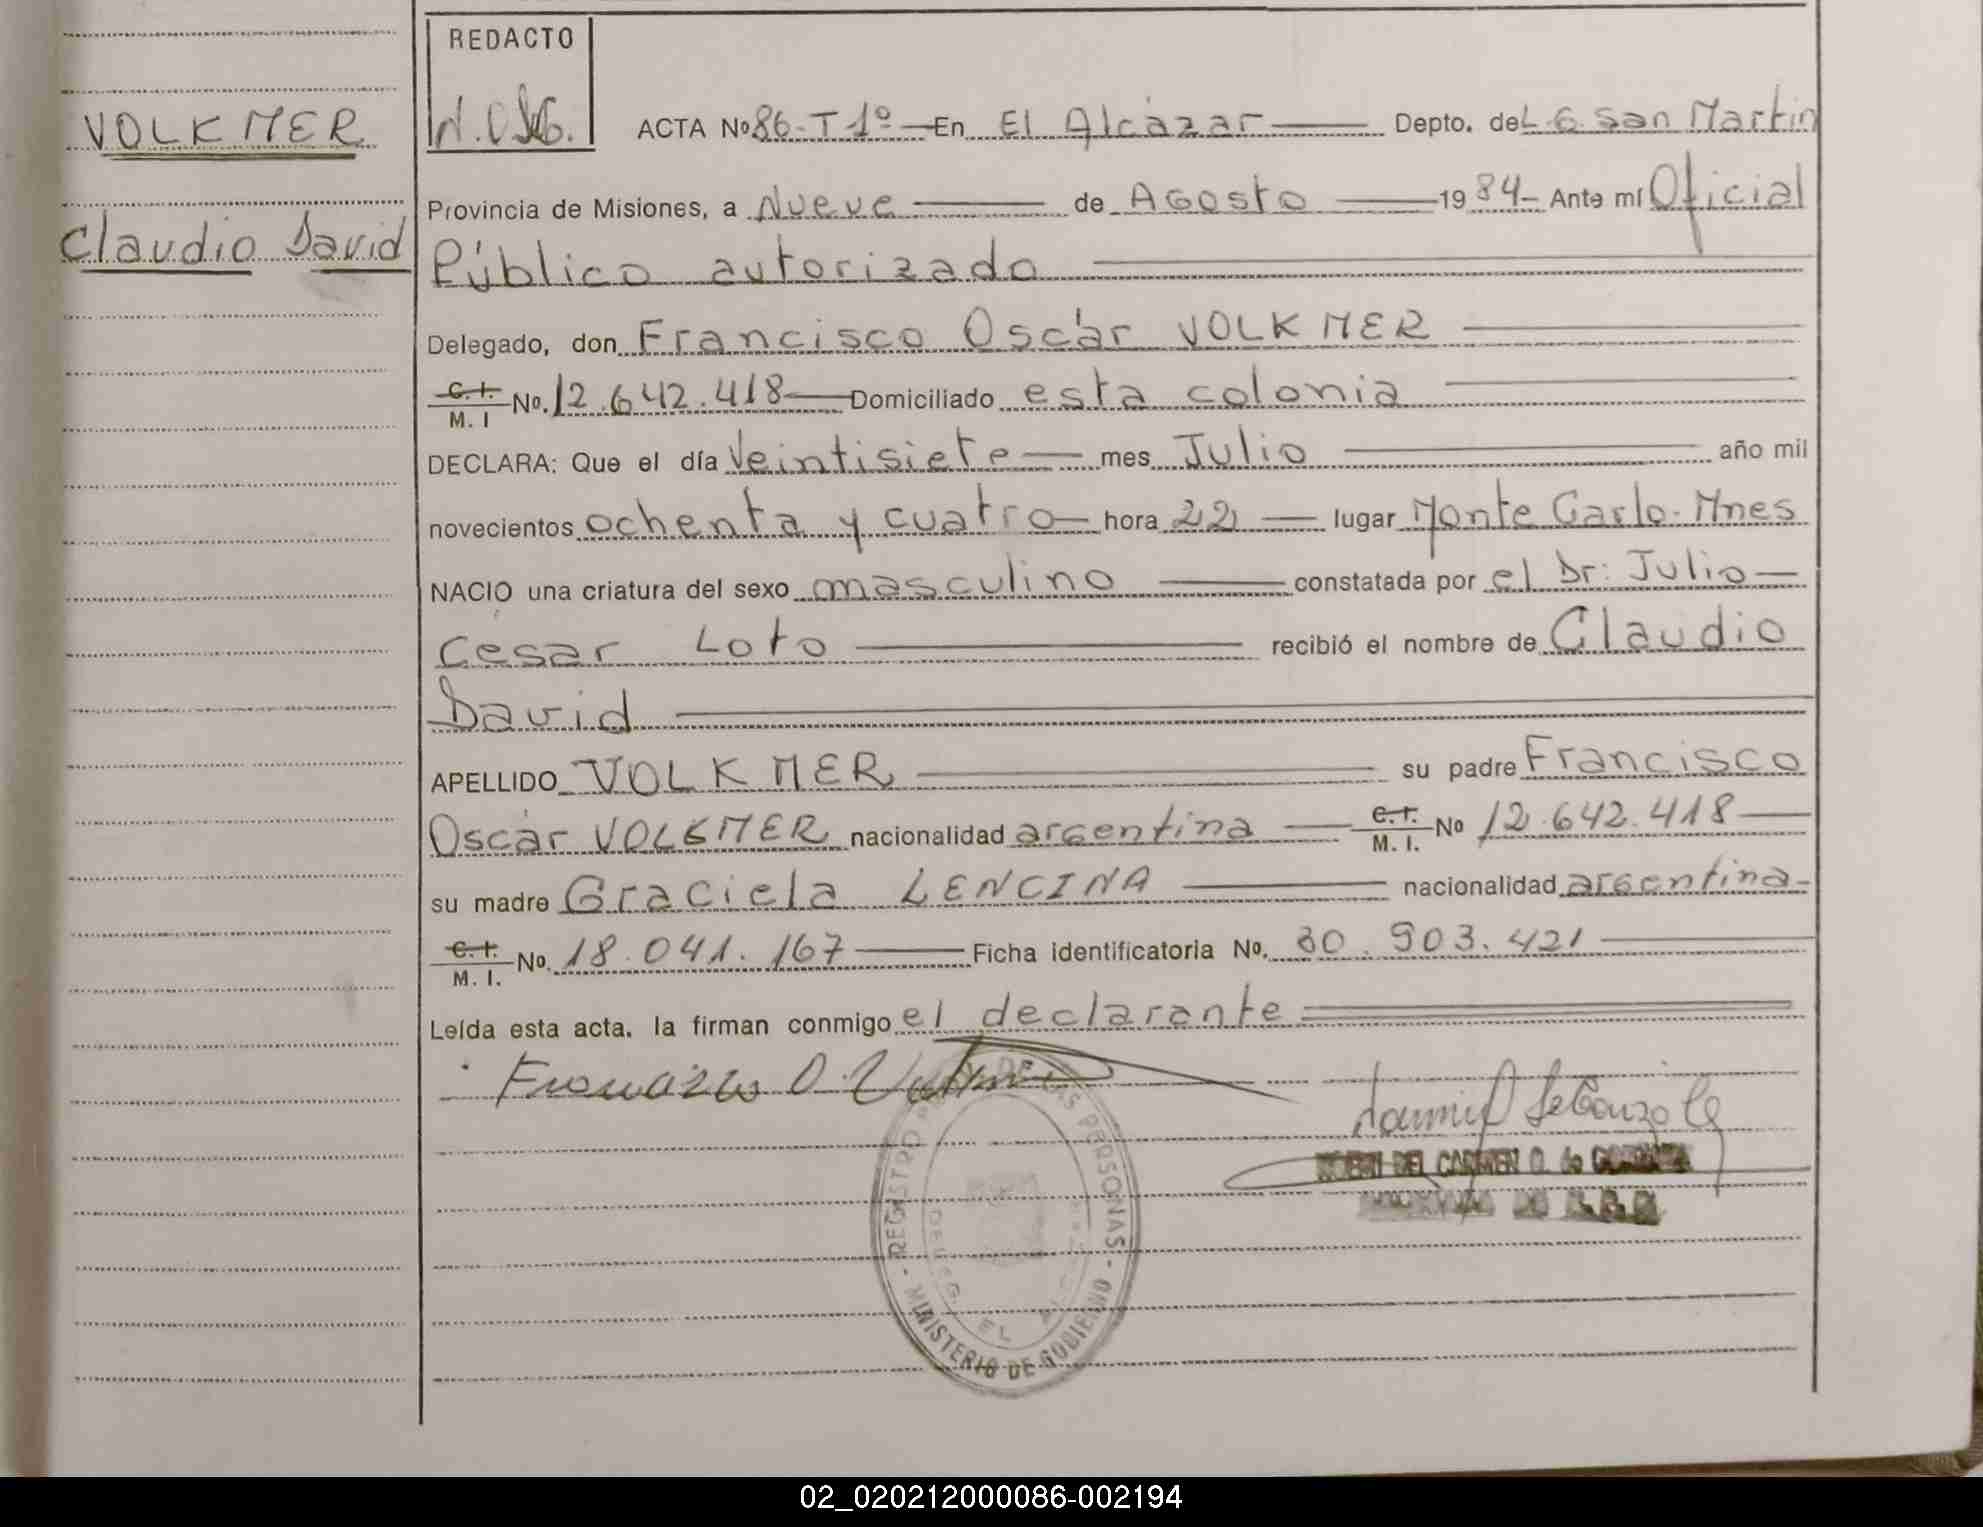 REDACTO
N.O.d.G.
VOLKMER
Claudio David
ACTA Nº 86-T-1º En El Alcázar Depto. de L. G. San Martin
Provincia de Misiones, a Nueve de Agosto 1984 Ante mí Oficial
Público autorizado
Delegado, don Francisco Oscár VOLKMER
C. I. M. I Nº. 12.642.418 Domiciliado esta colonia
DECLARA: Que el día Veintisiete mes Julio año mil
novecientos ochenta y cuatro hora 22 lugar Monte Carlo-Mnes
NACIO una criatura del sexo masculino constatada por el Dr: Julio
César Loto recibió el nombre de Claudio
David
APELLIDO VOLKMER su padre Francisco
Oscár VOLKMER nacionalidad argentina C. I. M. I. Nº 12.642.418
su madre Graciela LENCINA nacionalidad argentina
C. I. M. I. Nº. 18.041.167 Ficha identificatoria Nº. 30.903.421
Leída esta acta. la firman conmigo el declarante
Francisco O. Volkmer
DEL CARMEN O. de
REGISTRO DE LAS PERSONAS
MINISTERIO DE GOBIERNO
02_020212000086-002194